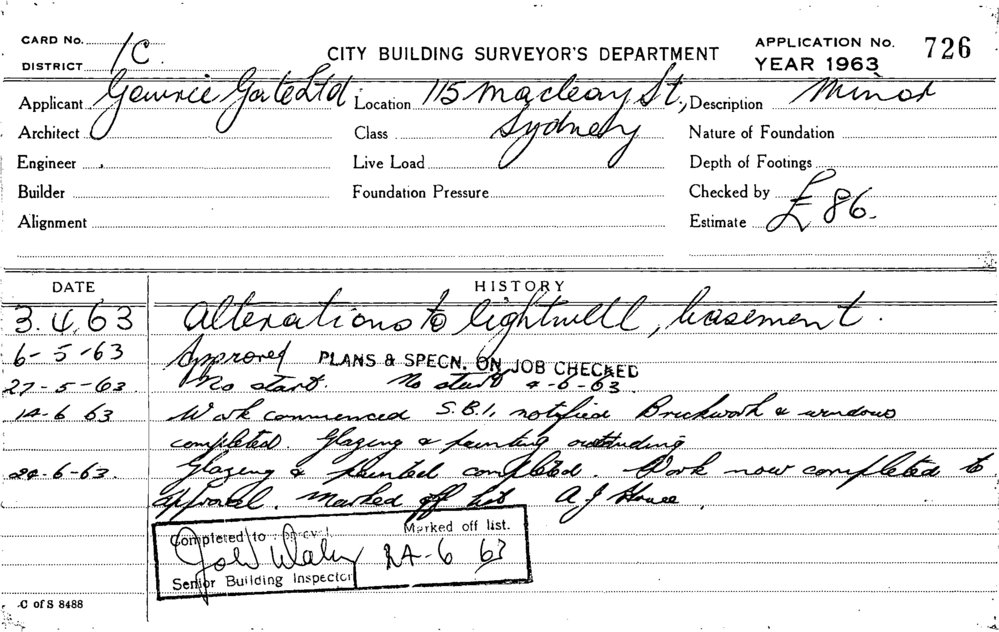 CARD No. 1C
DISTRICT
CITY BUILDING SURVEYOR'S DEPARTMENT
APPLICATION No. 726
YEAR 1963
Applicant Ltd Location 115 Macleay St., Sydney Description Minor
Architect Class Nature of Foundation
Engineer Live Load Depth of Footings
Builder Foundation Pressure Checked by
Alignment Estimate £86.
DATE HISTORY
3.4.63 Alterations to lightwell, basement.
6-5-63 Approved PLANS & SPECN. ON JOB CHECKED
27-5-63. No start. No start 4-6-63.
14-6 63 Work commenced S.B.I. notified Brickwork & windows
completed. Glazing & painting outstanding
24-6-63. Glazing & painted completed. Work now completed to
approval. Marked off list A J
Completed to approval. Marked off list.
24-6 63
Senior Building Inspector
C of S 8488